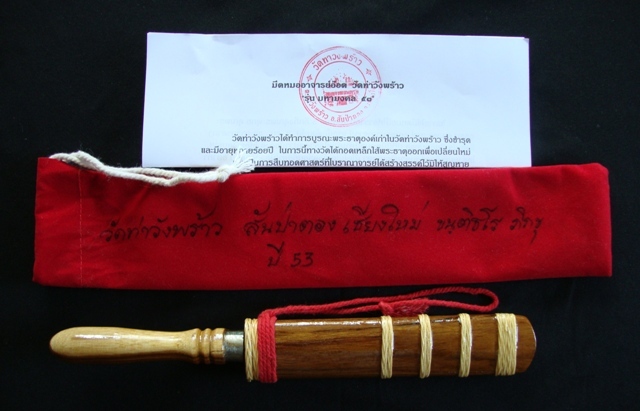 วัดท่าวังพร้าว
มีดหมออาจารย์อ๊อด วัดท่าวังพร้าว
"รุ่น มหามงคล. ๕๘"
วัดท่าวังพร้าวได้ทำการบูรณะพระธาตุองค์เก่าในวัดท่าวังพร้าว ซึ่งชำรุด
และมีอายุหลายร้อยปี ในการนี้ทางวัดได้ถอดเหล็กไส้พระธาตุออกเพื่อเปลี่ยนใหม่
เป็นการสืบทอดศาสตร์ที่โบราณาจารย์ได้สร้างสรรค์ไว้มิให้สูญหาย
วัดท่าวังพร้าว สันป่าตอง เชียงใหม่ ขนฺติธโร ภิกขุ
ปี 53